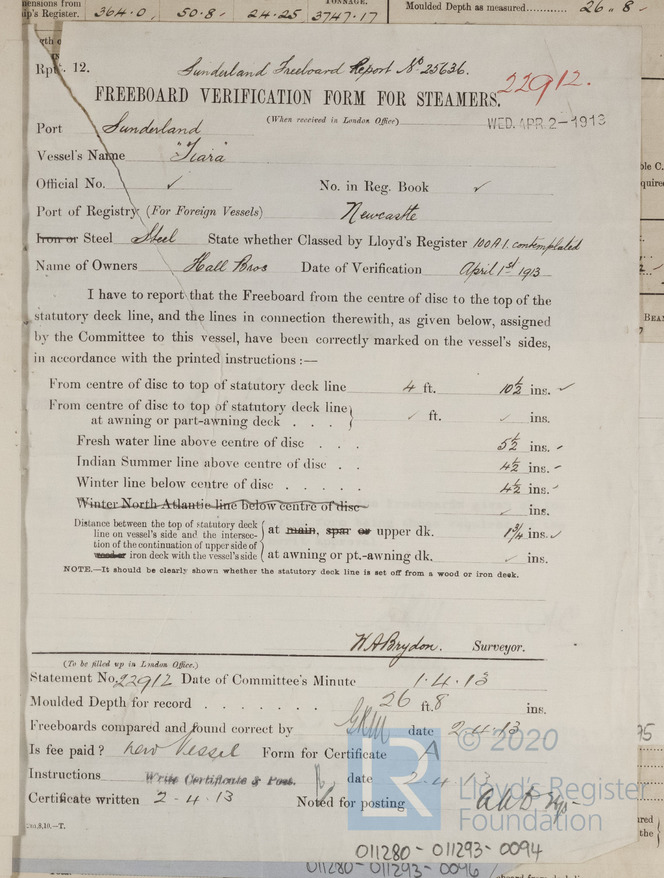 ensions from
ip's Register. 364.0 50.8 24.25 TONNAGE. 3747.17 Moulded Depth as measured............ 26 " 8
Rpt. 12. Sunderland Freeboard Report No 25636.
22912.
FREEBOARD VERIFICATION FORM FOR STEAMERS.
(When received in London Office) WED. APR. 2-1913
Port Sunderland
Vessel's Name "Tiara"
Official No. ✓ No. in Reg. Book ✓
Port of Registry (For Foreign Vessels) Newcastle
Iron or Steel Steel State whether Classed by Lloyd's Register 100A1. contemplated
Name of Owners Hall Bros Date of Verification April 1st 1913
I have to report that the Freeboard from the centre of disc to the top of the
statutory deck line, and the lines in connection therewith, as given below, assigned
by the Committee to this vessel, have been correctly marked on the vessel's sides,
in accordance with the printed instructions :—
From centre of disc to top of statutory deck line 4 ft. 10½ ins. ✓
From centre of disc to top of statutory deck line
at awning or part-awning deck . . . ✓ ft. ✓ ins.
Fresh water line above centre of disc . . . 5½ ins.
Indian Summer line above centre of disc . . 4½ ins.
Winter line below centre of disc . . . . . 4½ ins.
Winter North Atlantic line below centre of disc ✓ ins.
Distance between the top of statutory deck
line on vessel's side and the intersec-
tion of the continuation of upper side of
wood or iron deck with the vessel's side
at main, spar or upper dk. 1¾ ins. ✓
at awning or pt.-awning dk. ✓ ins.
NOTE.—It should be clearly shown whether the statutory deck line is set off from a wood or iron deck.
W A Brydon. Surveyor.
(To be filled up in London Office.)
Statement No. 22912 Date of Committee's Minute 1.4.13
Moulded Depth for record . . . . . . . 26 ft. 8 ins.
Freeboards compared and found correct by date 2-4.13
Is fee paid? New Vessel Form for Certificate A
Instructions Write Certificate & Post. date 2.4.13
Certificate written 2-4.13 Noted for posting
© 2020
Lloyd's Register
Foundation
LR
011280-011293-0094
011280-011293-0096